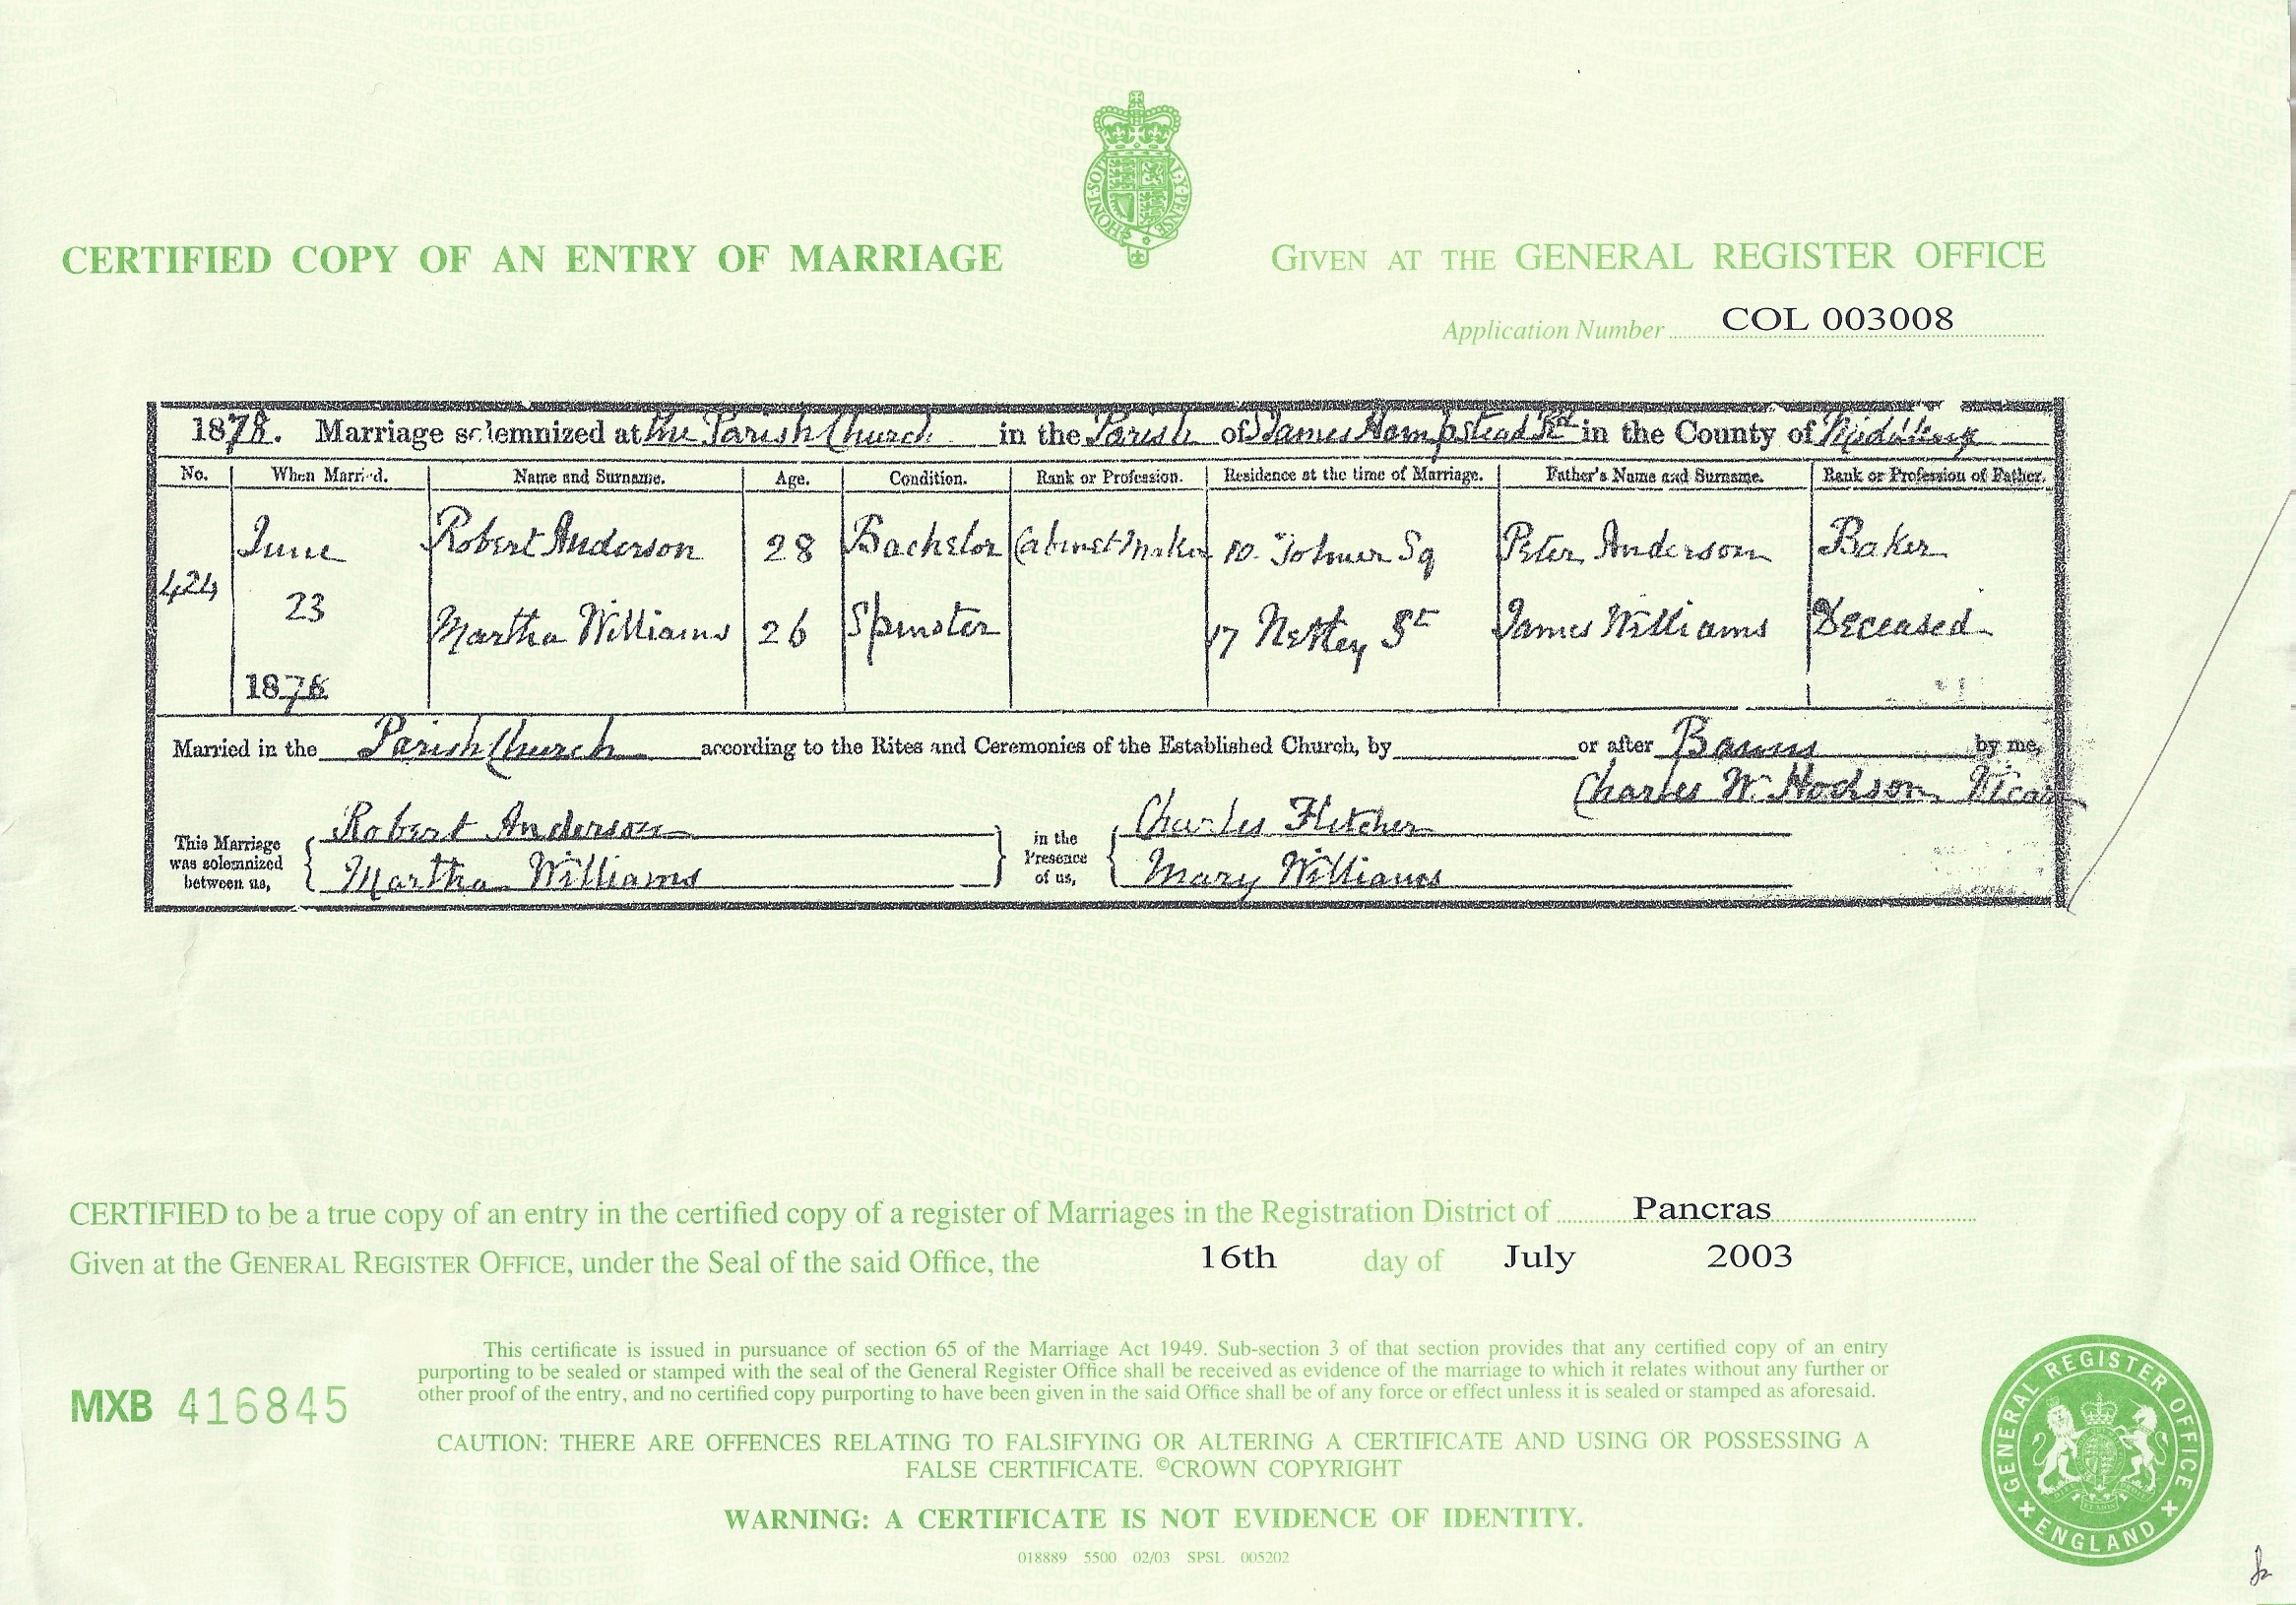 HONI·SOIT AL·Y·PENSE
CERTIFIED COPY OF AN ENTRY OF MARRIAGE
GIVEN AT THE GENERAL REGISTER OFFICE
Application Number COL 003008
1878. Marriage solemnized at the Parish Church in the Parish of St James Hampstead Rd in the County of Middlesex
No. When Married. Name and Surname. Age. Condition. Rank or Profession. Residence at the time of Marriage. Father's Name and Surname. Rank or Profession of Father.
June Robert Anderson 28 Bachelor Cabinet Maker 10 Tolmer Sq Peter Anderson Baker
424
23 Martha Williams 26 Spinster 17 Netley St James Williams Deceased
1878
Married in the Parish Church according to the Rites and Ceremonies of the Established Church, by or after Banns by me,
Charles W. Hodson Vicar
This Marriage was solemnized between us, Robert Anderson in the Presence of us, Charles Fletcher
Martha Williams Mary Williams
CERTIFIED to be a true copy of an entry in the certified copy of a register of Marriages in the Registration District of Pancras
Given at the GENERAL REGISTER OFFICE, under the Seal of the said Office, the 16th day of July 2003
This certificate is issued in pursuance of section 65 of the Marriage Act 1949. Sub-section 3 of that section provides that any certified copy of an entry
purporting to be sealed or stamped with the seal of the General Register Office shall be received as evidence of the marriage to which it relates without any further or
other proof of the entry, and no certified copy purporting to have been given in the said Office shall be of any force or effect unless it is sealed or stamped as aforesaid.
MXB 416845
CAUTION: THERE ARE OFFENCES RELATING TO FALSIFYING OR ALTERING A CERTIFICATE AND USING OR POSSESSING A
FALSE CERTIFICATE. ©CROWN COPYRIGHT
WARNING: A CERTIFICATE IS NOT EVIDENCE OF IDENTITY.
018889 5500 02/03 SPSL 005202
GENERAL REGISTER OFFICE
ENGLAND